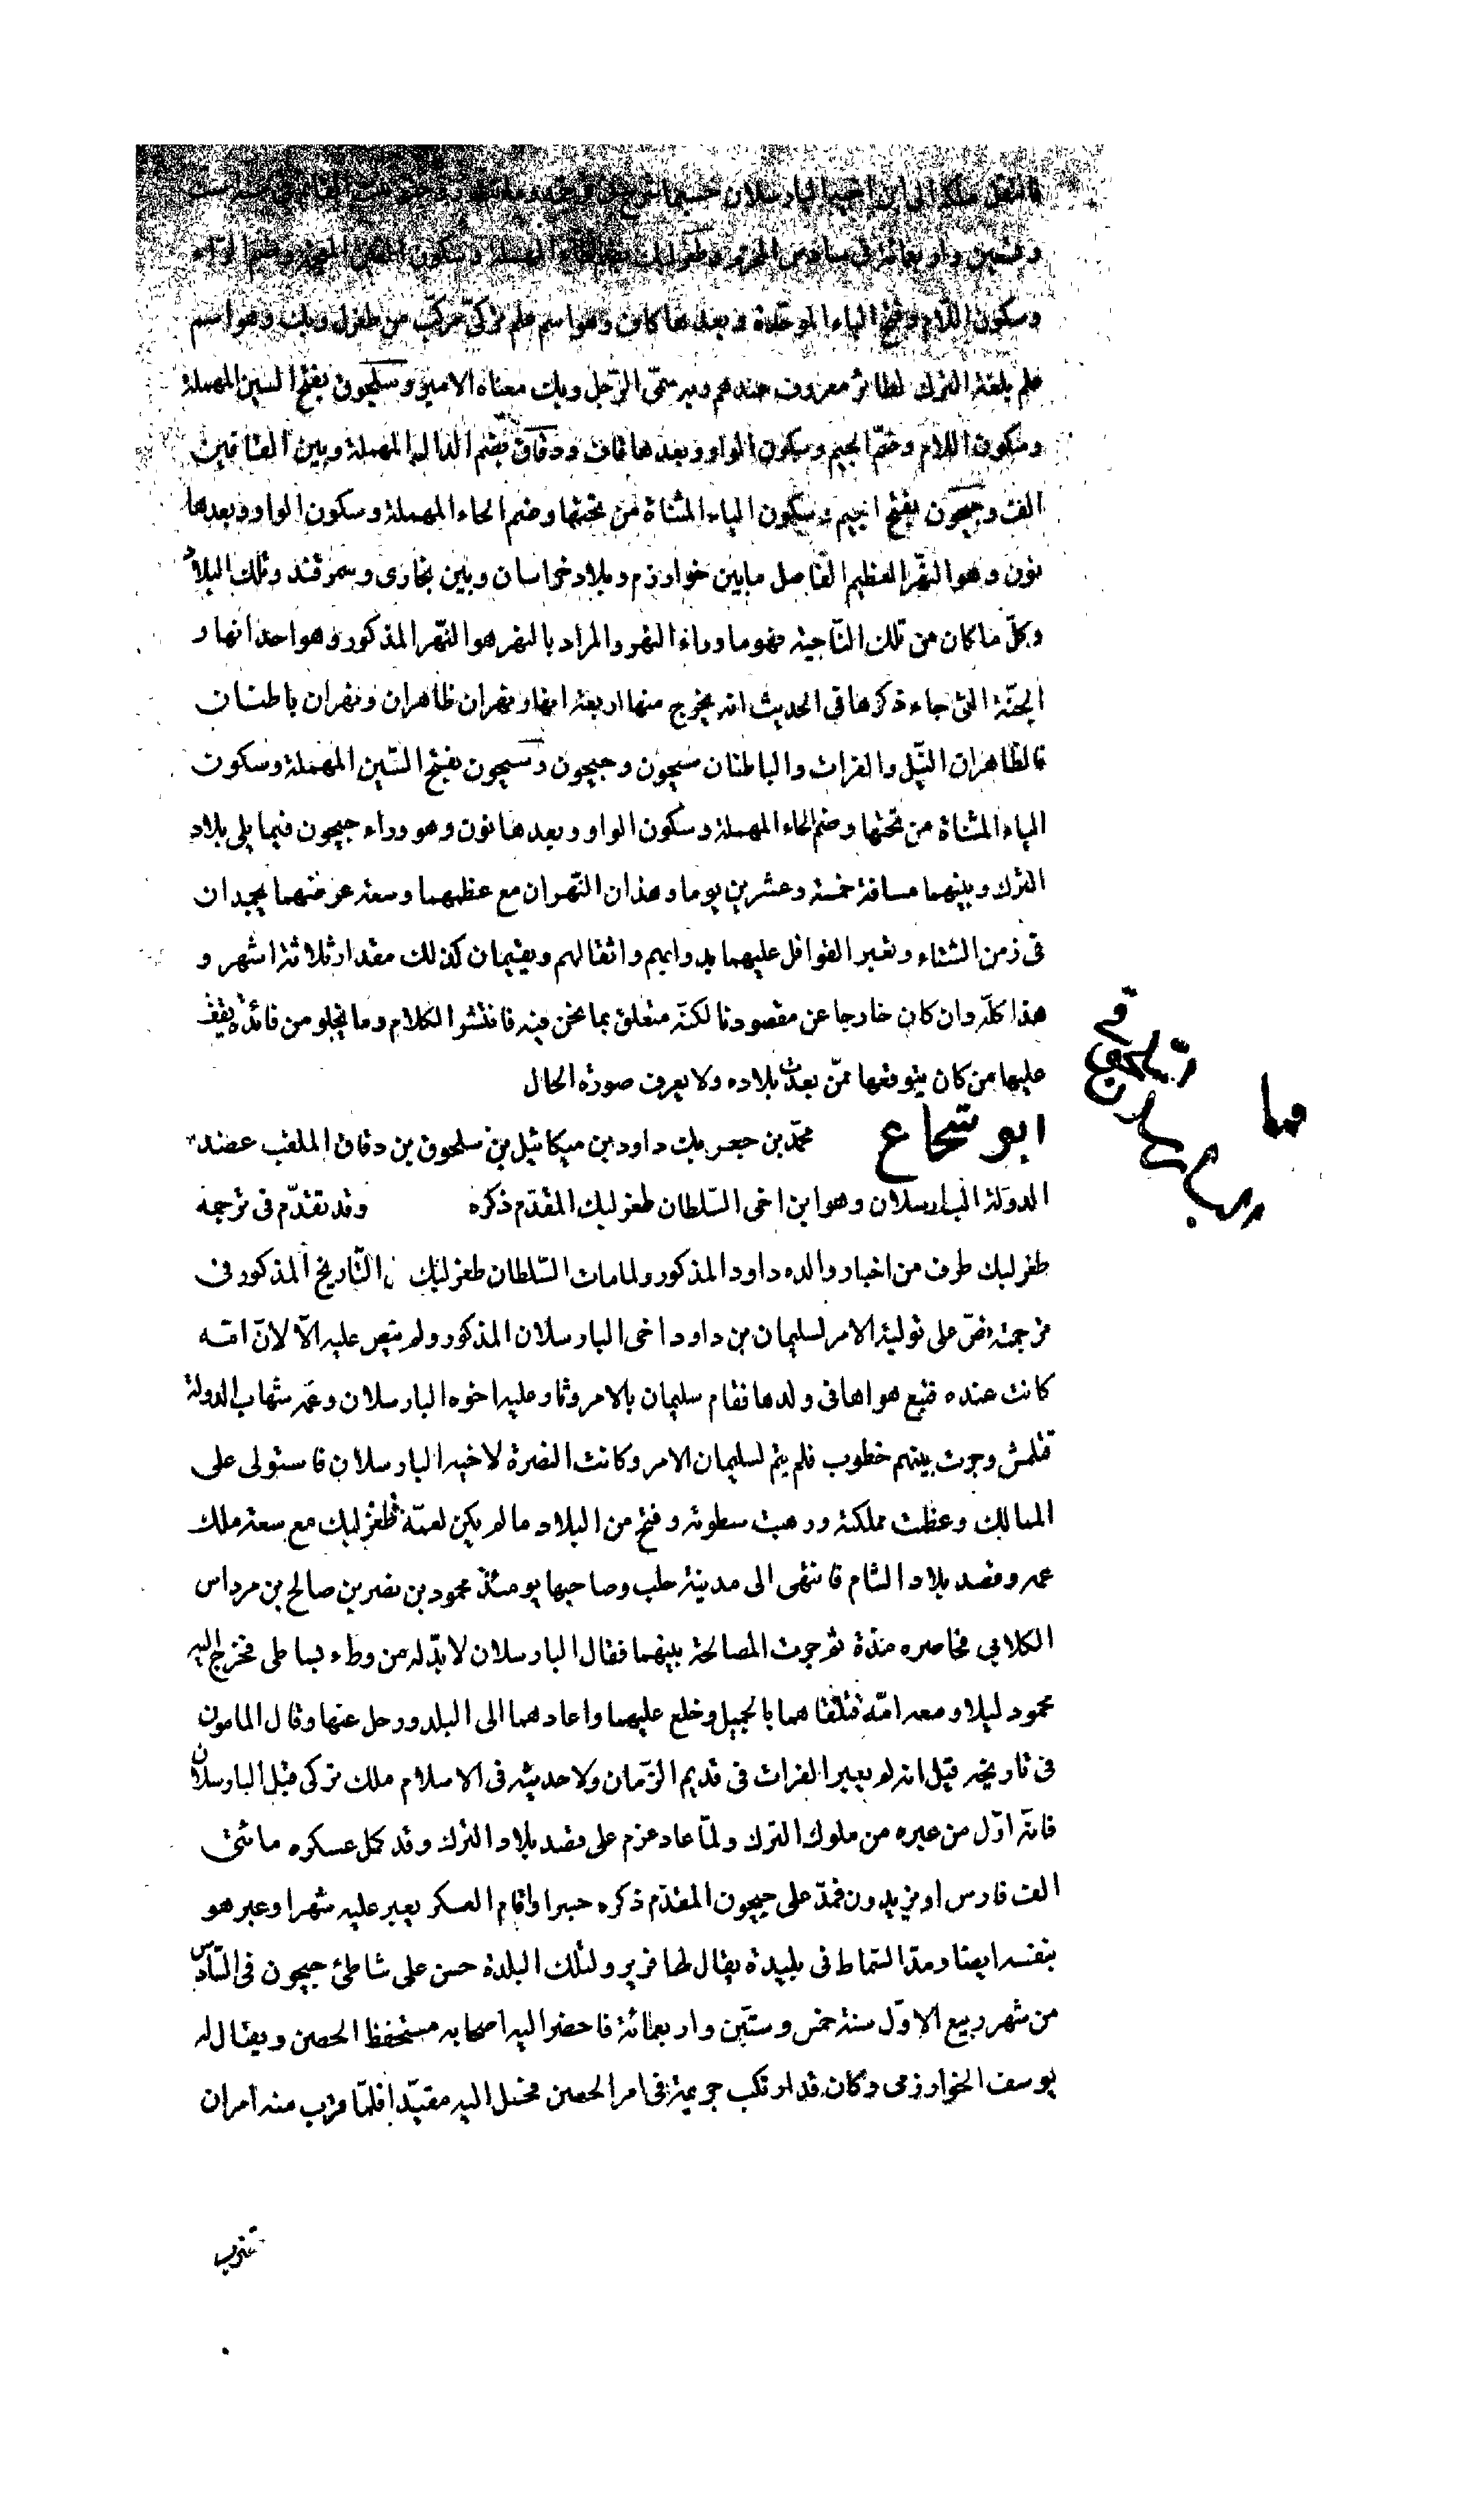 فانتقل ملكه الى ابن اخيه البارسلان حسبما شرح
وسبعين واربعمائة في سادس المحرم وطغرلبك بضم الطاء المهملة وسكون الغين المعجمة وضم الراء
وسكون اللام وفتح الباء الموحدة وبعدها كاف وهو اسم علم تركى مركب من طغرل وبك وهو اسم
علم بلغة الترك لطائر معروف عندهم وبه سمّى الرّجل وبك معناه الامير وسلجوق بفتح السين المهملة
وسكون اللام وضمّ الجيم وسكون الواو وبعدها قاف ودقاق بضم الدال المهملة وبين القافين
الف وجيحون بفتح الجيم وسكون الياء المثناة من تحتها وضم الحاء المهملة وسكون الواو وبعدها
نون وهو النهر العظيم الفاصل مابين خوارزم وبلاد خراسان وبين بخارى وسمرقند وتلك البلاد
وكلّ ما كان من تلك النّاحية فهو ما وراء النهر والمراد بالنهر هو النّهر المذكور وهو احد انهار
الجنّة التى جاء ذكرها في الحديث انه يخرج منها اربعة انهار نهران ظاهران ونهران باطنان
فالظاهران النّيل والفرات والباطنان سيحون وجيحون وسيحون بفتح السّين المهملة وسكون
الياء المثناة من تحتها وضم الحاء المهملة وسكون الواو وبعدها نون وهو وراء جيحون فيما يلى بلاد
الترك وبينهما مسافة خمسة وعشرين يوما وهذان النّهران مع عظمهما وسعة عرضهما يجمدان
فى زمن الشتاء وتعبر القوافل عليهما بدوابهم واثقالهم ويقيمان كذلك مقدار ثلاثة اشهر و
هذا كلّه وان كان خارجا عن مقصودنا لكنّه متعلق بما نحن فيه فانتشر الكلام وما يخلو من فائدة يقف
عليها من كان يتوقعها ممّن بعدت بلاده ولا يعرف صورة الحال
ابو شجاع محمّد بن جعر بك داود بن ميكائيل بن سلجوق بن دقاق الملقب عضد
الدولة البارسلان وهو ابن اخى السّلطان طغرلبك المقدّم ذكره وقد تقدّم فى ترجمة
طغرلبك طرف من اخبار والده داود المذكور ولما مات السّلطان طغرلبك فى التّاريخ المذكور فى
ترجمته نصّ على تولية الامر لسليمان بن داود اخى البارسلان المذكور ولم ينص عليه الّا لانّ امّه
كانت عنده فتبع هواها فى ولدها فقام سليمان بالامر وثار عليه اخوه البارسلان وعمّه شهاب الدولة
قتلمش وجرت بينهم خطوب فلم يتم لسليمان الامر وكانت النصرة لاخيه البارسلان فاستولى على
الممالك وعظمت مملكته ورهبت سطوته وفتح من البلاد ما لم يكن لعمّه طغرلبك مع سعة ملك
عمه وقصد بلاد الشام فانتهى الى مدينة حلب وصاحبها يومئذ محمود بن نصر بن صالح بن مرداس
الكلابي فحاصره مدّة ثم جرت المصالحة بينهما فقال البارسلان لا بدّ له من وطء بساطى فخرج اليه
محمود ليلا ومعه امّه فتلقاهما بالجميل وخلع عليهما واعادهما الى البلد ورحل عنها وقال المامون
فى تاريخه قيل انه لم يعبر الفرات فى قديم الزّمان ولا حديثه فى الاسلام ملك تركى قبل البارسلان
فانّه اوّل من عبره من ملوك الترك ولمّا عاد عزم على قصد بلاد الترك وقد كمل عسكره مائتى
الف فارس او يزيدون فمدّ على جيحون المقدّم ذكره جسرا واقام العسكر يعبر عليه شهرا وعبر هو
بنفسه ايضا ومدّ السّماط فى بليدة يقال لها فربر ولتلك البلدة حصن على شاطئ جيحون فى السّادس
من شهر ربيع الاوّل سنة خمس وستّين واربعمائة فاحضر اليه اصحابه مستحفظ الحصن ويقال له
يوسف الخوارزمى وكان قد ارتكب جريمة فى امر الحصن فحمل اليه مقيّدا فلمّا قرب منه امر ان
السلجوقي
البارسلان